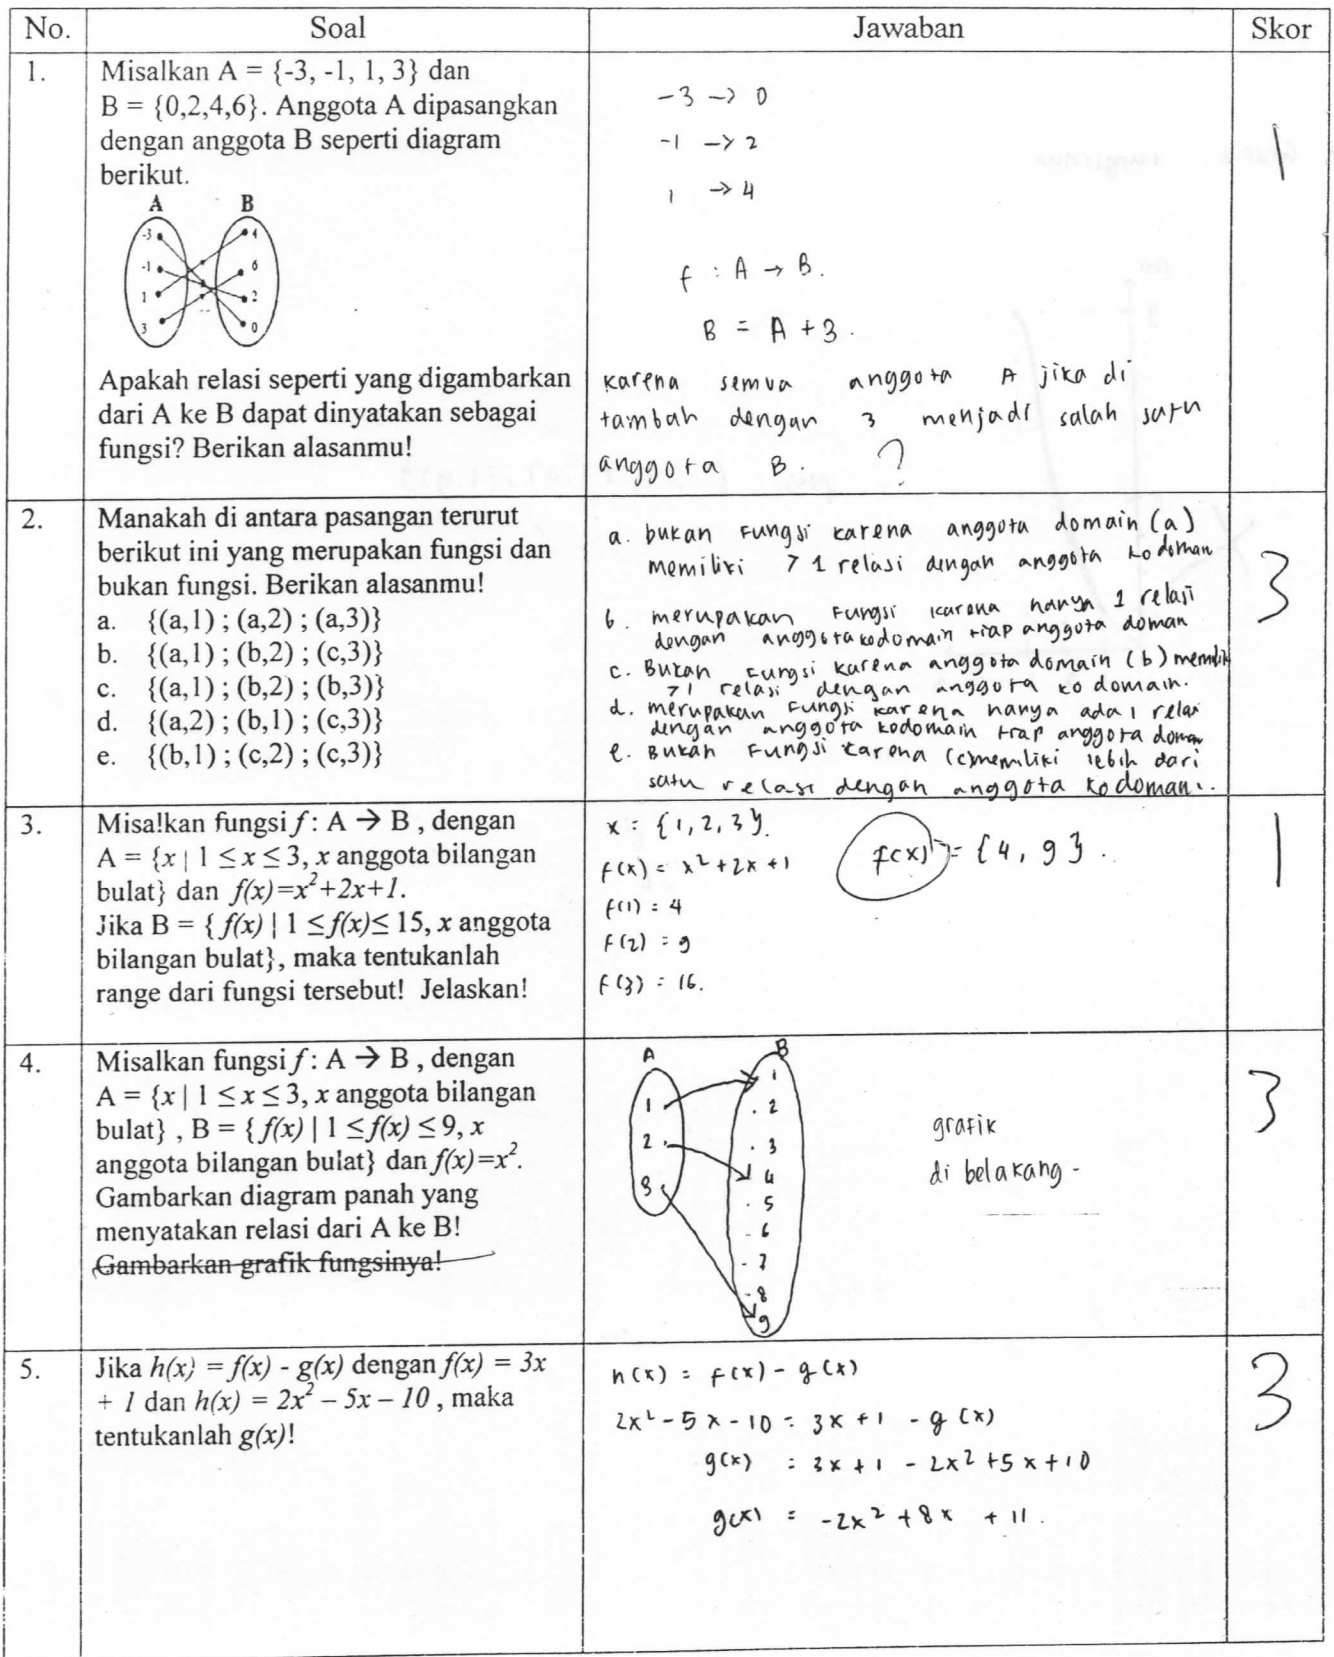 No. Soal Jawaban Skor
1. Misalkan A = {-3, -1, 1, 3} dan
B = {0,2,4,6}. Anggota A dipasangkan
dengan anggota B seperti diagram
berikut.
A B
-3 4
-1 6
1 2
3 0
Apakah relasi seperti yang digambarkan
dari A ke B dapat dinyatakan sebagai
fungsi? Berikan alasanmu!
-3 → 0
-1 → 2
1 → 4
f : A → B.
B = A + 3.
karena semua anggota A jika di
tambah dengan 3 menjadi salah satu
anggota B. ?
1
2. Manakah di antara pasangan terurut
berikut ini yang merupakan fungsi dan
bukan fungsi. Berikan alasanmu!
a. {(a,1) ; (a,2) ; (a,3)}
b. {(a,1) ; (b,2) ; (c,3)}
c. {(a,1) ; (b,2) ; (b,3)}
d. {(a,2) ; (b,1) ; (c,3)}
e. {(b,1) ; (c,2) ; (c,3)}
a. bukan fungsi karena anggota domain (a)
memiliki > 1 relasi dengan anggota kodoman
b. merupakan fungsi karena hanya 1 relasi
dengan anggota kodomain tiap anggota doman
c. Bukan fungsi karena anggota domain (b) memiliki
>1 relasi dengan anggota ko domain.
d. merupakan fungsi karena hanya ada 1 relasi
dengan anggota kodomain tiap anggota doman
e. Bukan fungsi karena (c) memiliki lebih dari
satu relasi dengan anggota kodoman.
3
3. Misalkan fungsi f : A → B , dengan
A = {x | 1 ≤ x ≤ 3, x anggota bilangan
bulat} dan f(x)=x²+2x+1.
Jika B = { f(x) | 1 ≤ f(x) ≤ 15, x anggota
bilangan bulat}, maka tentukanlah
range dari fungsi tersebut! Jelaskan!
x = {1, 2, 3}.
f(x) = x² + 2x + 1
f(1) = 4
f(2) = 9
f(3) = 16.
f(x) = {4, 9}.
1
4. Misalkan fungsi f : A → B , dengan
A = {x | 1 ≤ x ≤ 3, x anggota bilangan
bulat} , B = { f(x) | 1 ≤ f(x) ≤ 9, x
anggota bilangan bulat} dan f(x)=x².
Gambarkan diagram panah yang
menyatakan relasi dari A ke B!
Gambarkan grafik fungsinya!
A B
1
2
3
1
2
3
4
5
6
7
8
9
grafik
di belakang -
3
5. Jika h(x) = f(x) - g(x) dengan f(x) = 3x
+ 1 dan h(x) = 2x² – 5x – 10 , maka
tentukanlah g(x)!
h(x) = f(x) - g(x)
2x² - 5x - 10 = 3x + 1 - g(x)
g(x) = 3x + 1 - 2x² + 5x + 10
g(x) = -2x² + 8x + 11.
3